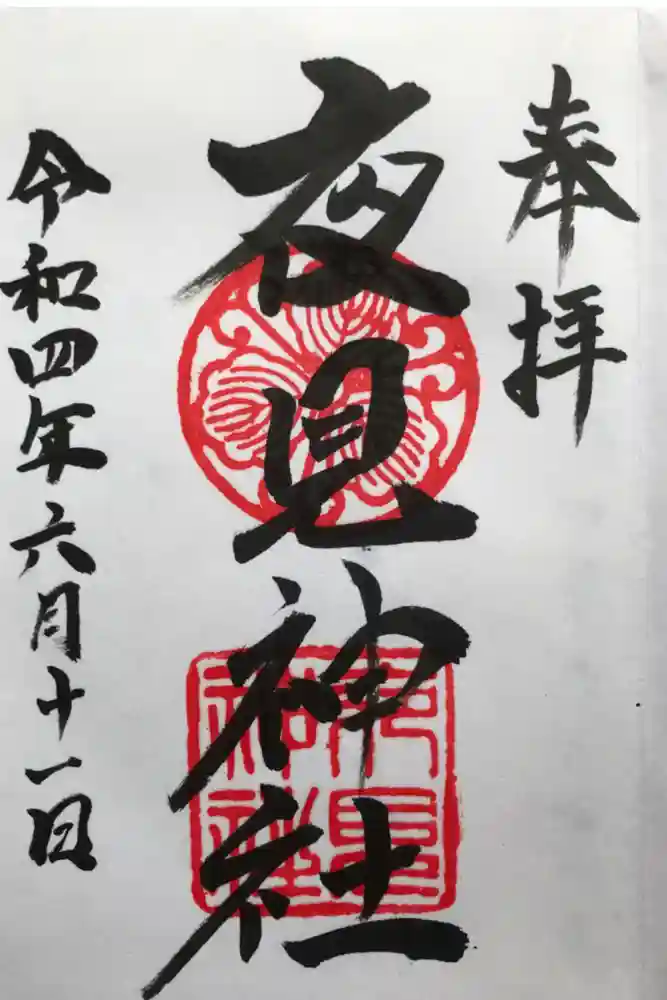 奉拝
夜見神社
夜見神社
令和四年六月十一日